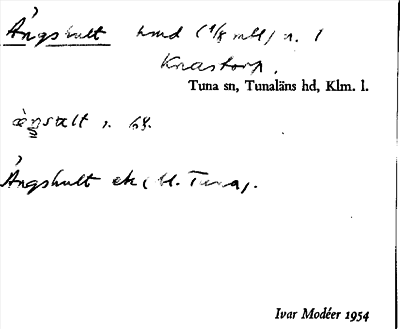 Ängshult hmd (1/8 mtl) n. 1
Knastorp.
Tuna sn, Tunaläns hd, Klm. l.
Ängshult ek (bl. Tuna).
Ivar Modéer 1954